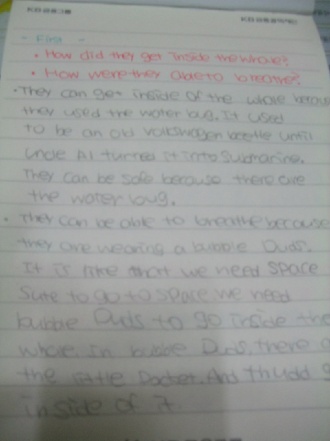 - First -
• How did they get inside the whale?
• How were they able to breathe?
• They can get inside of the whale because
they used the water bug. It used
to be an old volkswagen beetle until
uncle Al turned it into submarine.
They can be safe because there are
the water bug.
• They can be able to breathe because
they are wearing a bubble Duds.
It is like that we need space
Sute to go to space we need
bubble Duds to go inside the
whale. in bubble Duds, there
the little Docket. And
inside of it.